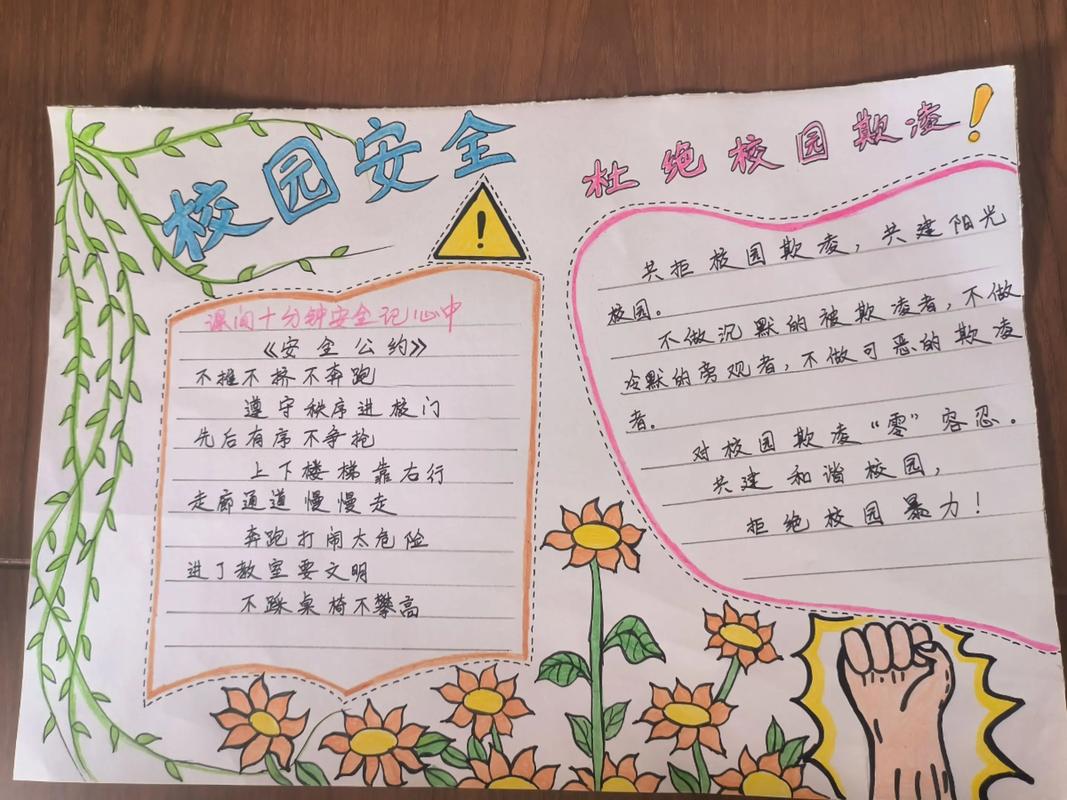 校园安全
课间十分钟安全记心中
《安全公约》
不推不挤不奔跑
遵守秩序进校门
先后有序不争抢
上下楼梯靠右行
走廊通道慢慢走
奔跑打闹太危险
进了教室要文明
不踩桌椅不攀高
杜绝校园欺凌！
共拒校园欺凌，共建阳光
校园。
不做沉默的被欺凌者，不做
冷默的旁观者，不做可恶的欺凌
者。
对校园欺凌“零”容忍。
共建和谐校园，
拒绝校园暴力！